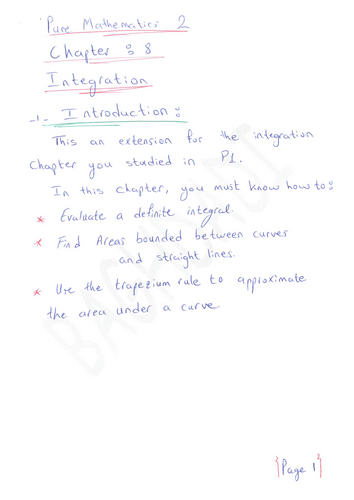 Pure Mathematics 2
Chapter : 8
Integration
-1- Introduction :
This an extension for the integration
Chapter you studied in P1.
In this chapter, you must know how to :
* Evaluate a definite integral.
* Find Areas bounded between curves
and straight lines.
* Use the trapezium rule to approximate
the area under a curve
{Page 1}